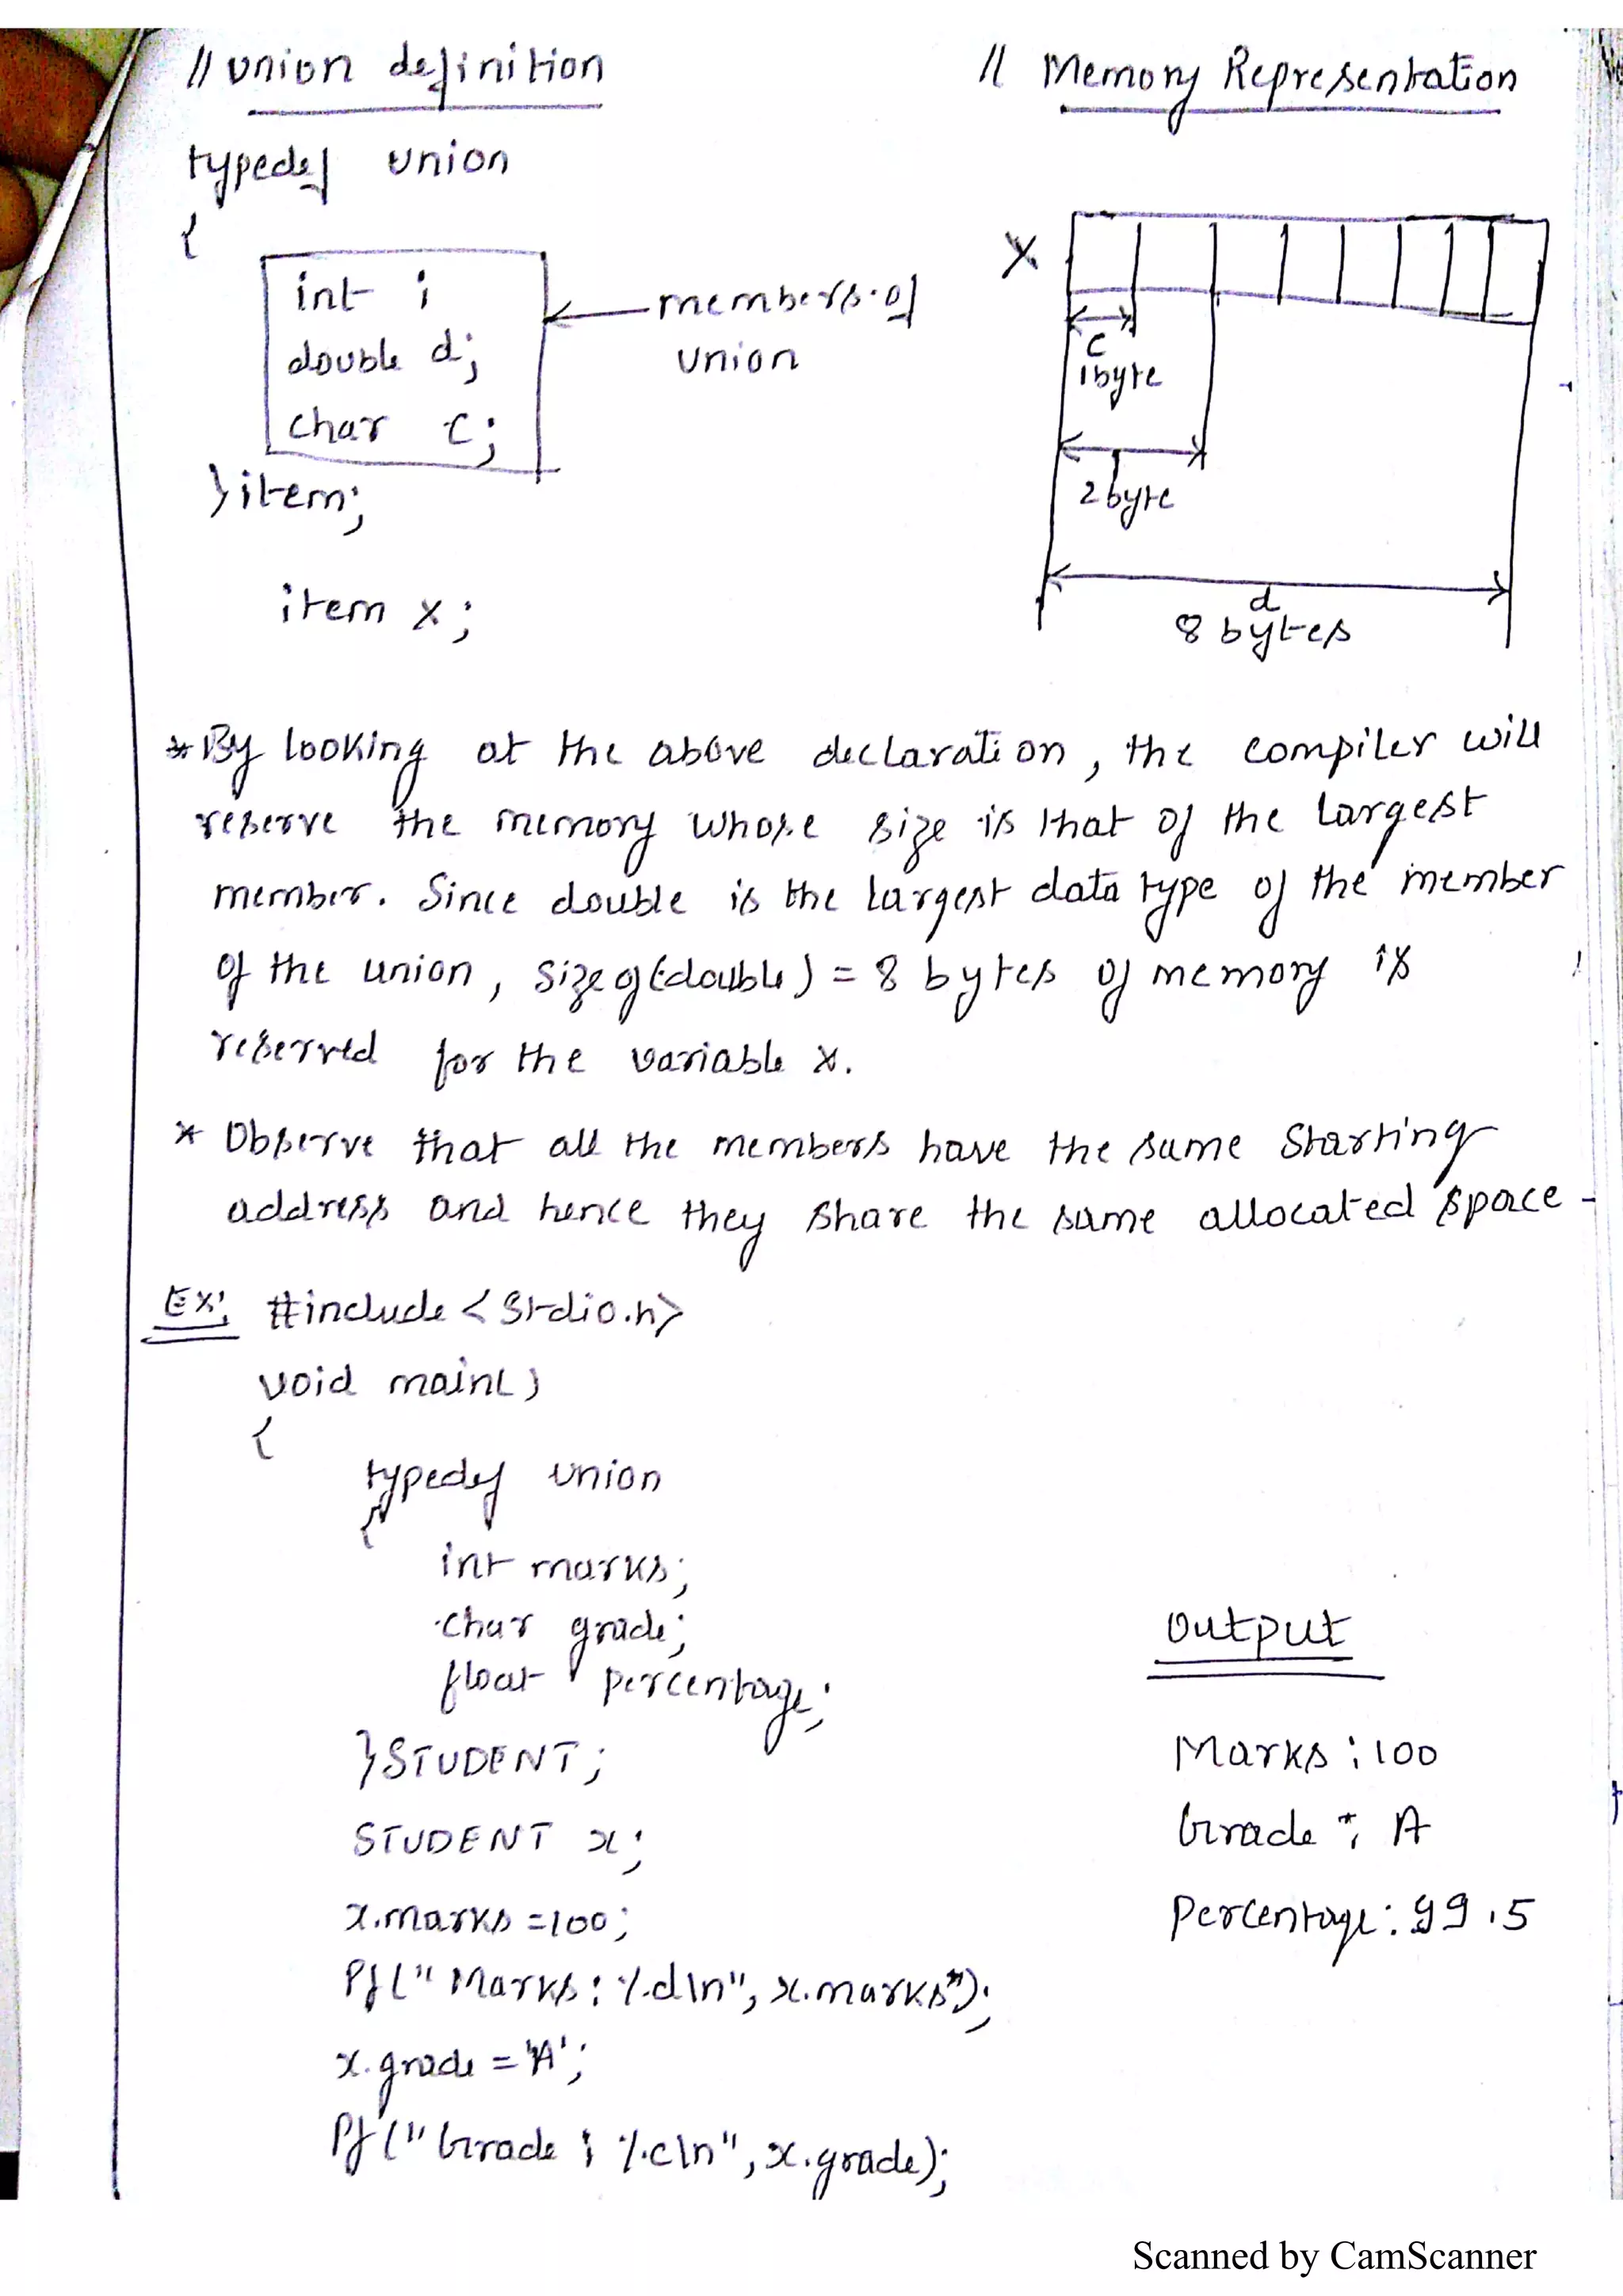 // union definition
typedef union
{
int i
double d;
char c;
}item;
item x;
members of
union
// Memory Representation
X
C
1byte
2byte
d
8 bytes
* By looking at the above declaration, the compiler will
reserve the memory whose size is that of the largest
member. Since double is the largest data type of the member
of the union, sizeof(double) = 8 bytes of memory is
reserved for the variable x.
* Observe that all the members have the same starting
address and hence they share the same allocated space
Ex: #include <Stdio.h>
void main()
{
typedef union
{
int marks;
char grade;
float percentage;
}STUDENT;
STUDENT x;
x.marks =100;
Pf("Marks: %d\n", x.marks");
x.grade = 'A';
Pf("Grade : %c\n", x.grade);
Output
Marks : 100
Grade : A
Percentage: 99.5
Scanned by CamScanner